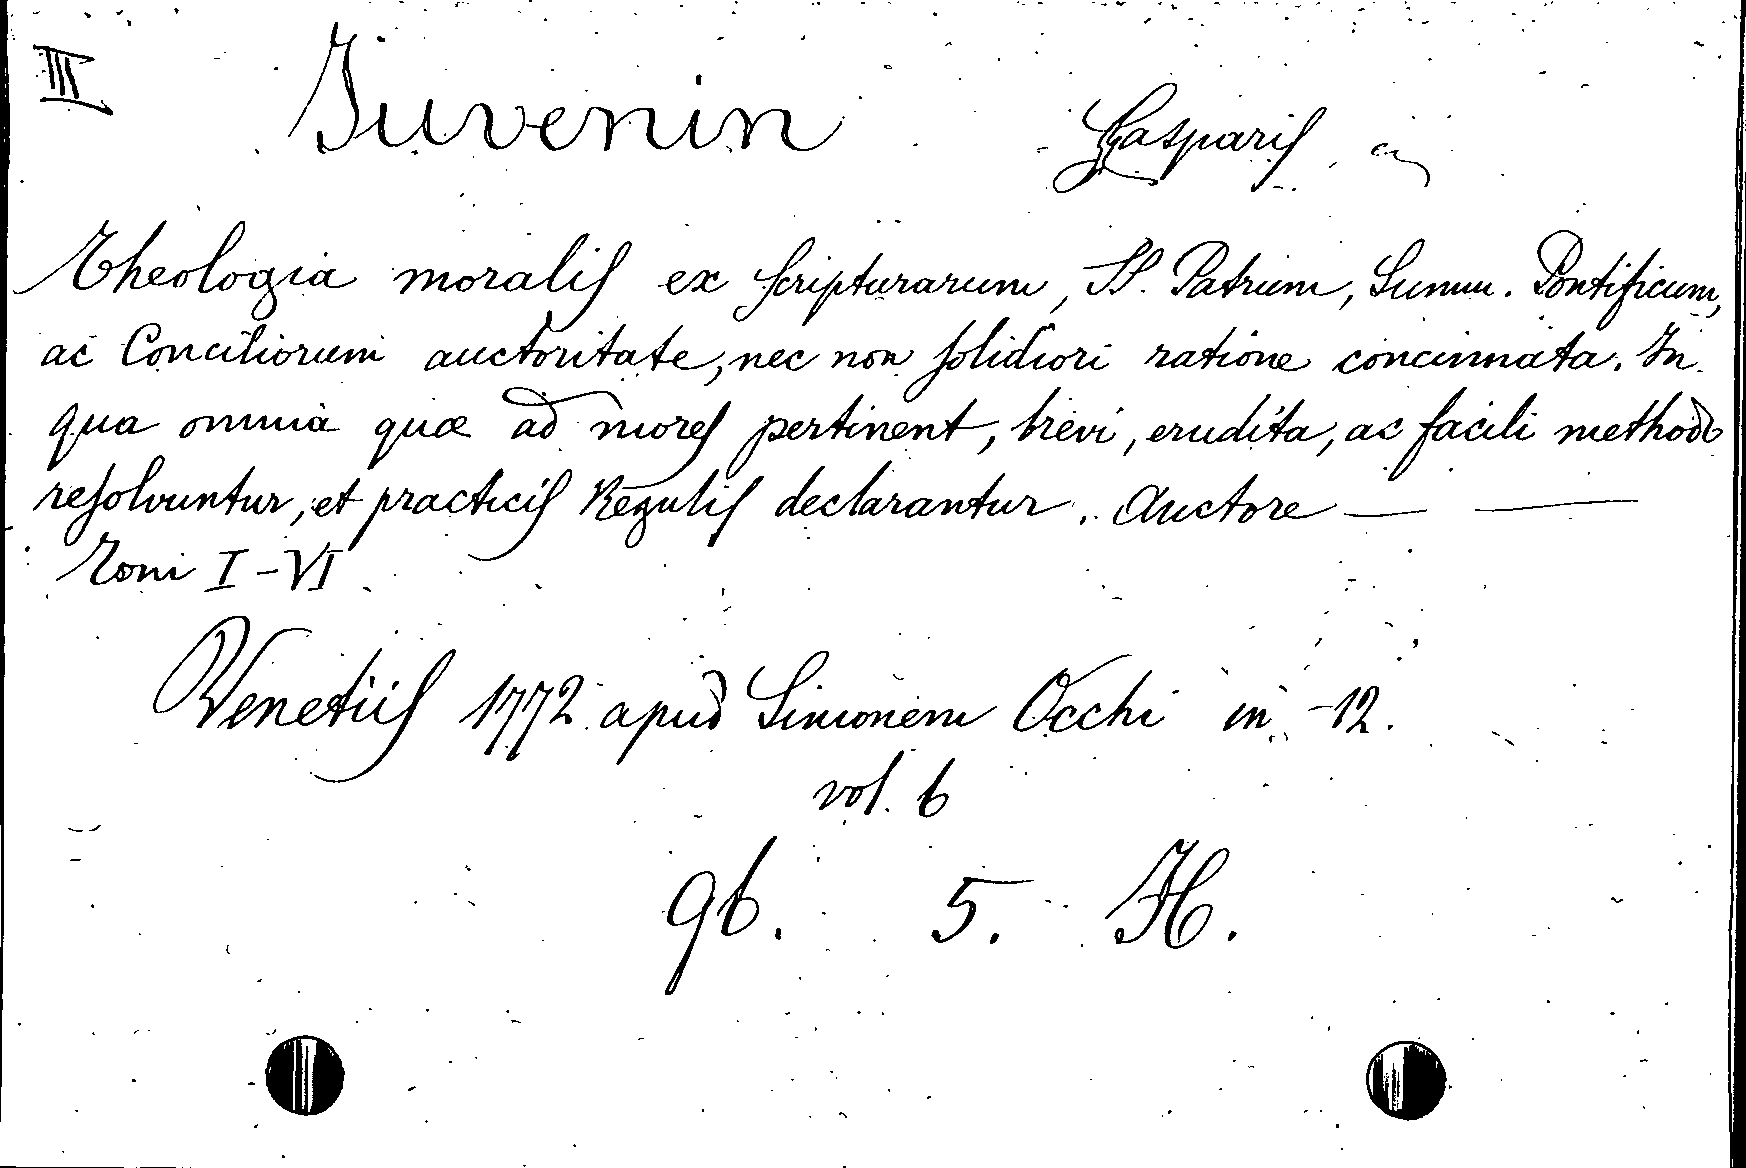 III Juvenin Gasparis
Theologia moralis ex Scripturarum, SS. Patrum, Summ. Pontificum,
ac Conciliorum auctoritate, nec non solidiori ratione concinnata. In
qua omnia quæ ad mores pertinent, brevi, erudita, ac facili methodo
resolvuntur, et practicis Regulis declarantur. Auctore — —
Tomi I-VI
Venetiis 1772 apud Simonem Occhi in -12.
vol. 6
96. 5. H.